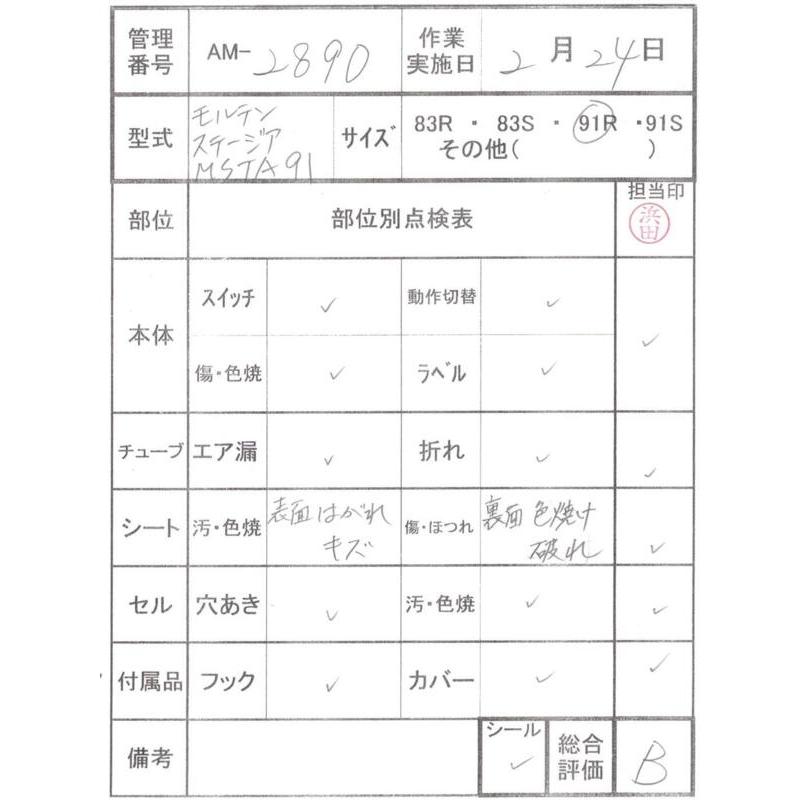 管理番号 AM-2890 作業実施日 2月24日
型式 モルテン ステージア MSTA91 サイズ 83R・83S・91R・91S その他( )
部位 部位別点検表 担当印 浜田
本体 スイッチ ✓ 動作切替 ✓ ✓
傷・色焼 ✓ ラベル ✓
チューブ エア漏 ✓ 折れ ✓ ✓
シート 汚・色焼 表面はがれ キズ 傷・ほつれ 裏面色焼け 破れ ✓
セル 穴あき ✓ 汚・色焼 ✓ ✓
付属品 フック ✓ カバー ✓ ✓
備考 シール ✓ 総合評価 B